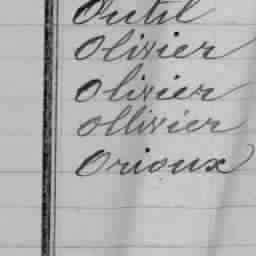 Outil
Olivier
Olivier
Ollivier
Orioux